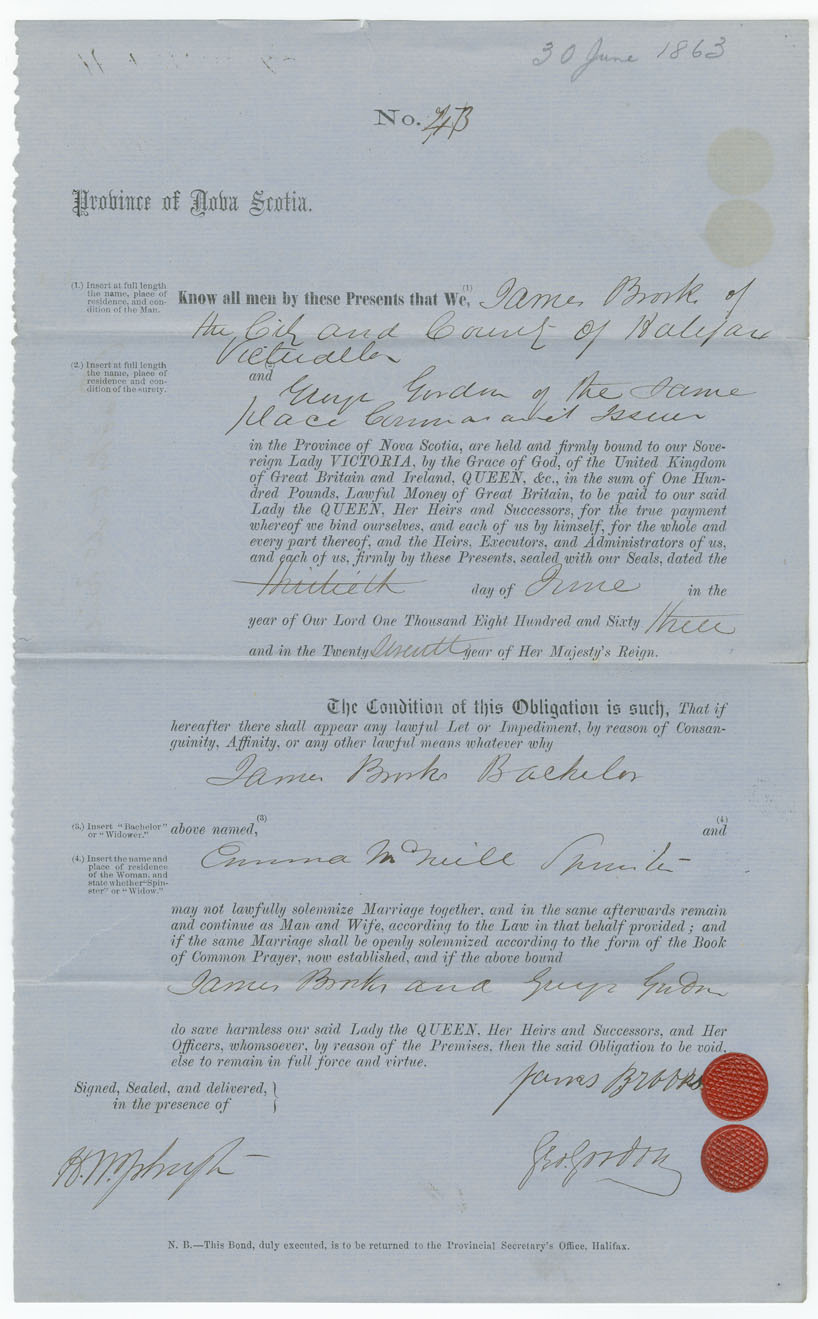 30 June 1863
No. 43
Province of Nova Scotia.
(1.) Insert at full length the name, place of residence, and condition of the Man.
Know all men by these Presents that We, (1) James Brooks of
the City and County of Halifax
Victualler
(2.) Insert at full length the name, place of residence and condition of the surety.
and
George Gordon of the same
place Commissariat Issuer
in the Province of Nova Scotia, are held and firmly bound to our Sove-
reign Lady VICTORIA, by the Grace of God, of the United Kingdom
of Great Britain and Ireland, QUEEN, &c., in the sum of One Hun-
dred Pounds, Lawful Money of Great Britain, to be paid to our said
Lady the QUEEN, Her Heirs and Successors, for the true payment
whereof we bind ourselves, and each of us by himself, for the whole and
every part thereof, and the Heirs, Executors, and Administrators of us,
and each of us, firmly by these Presents, sealed with our Seals, dated the
thirtieth day of June in the
year of Our Lord One Thousand Eight Hundred and Sixty three
and in the Twenty seventh year of Her Majesty's Reign.
The Condition of this Obligation is such, That if
hereafter there shall appear any lawful Let or Impediment, by reason of Consan-
guinity, Affinity, or any other lawful means whatever why
James Brooks Bachelor
(3.) Insert "Bachelor" or "Widower."
above named, (3) (4) and
(4.) Insert the name and place of residence of the Woman, and state whether "Spinster" or "Widow."
Emma McNeill Spinster
may not lawfully solemnize Marriage together, and in the same afterwards remain
and continue as Man and Wife, according to the Law in that behalf provided; and
if the same Marriage shall be openly solemnized according to the form of the Book
of Common Prayer, now established, and if the above bound
James Brooks and George Gordon
do save harmless our said Lady the QUEEN, Her Heirs and Successors, and Her
Officers, whomsoever, by reason of the Premises, then the said Obligation to be void,
else to remain in full force and virtue.
James Brooks
Signed, Sealed, and delivered, }
in the presence of }
Geo. Gordon
N. B.—This Bond, duly executed, is to be returned to the Provincial Secretary's Office, Halifax.